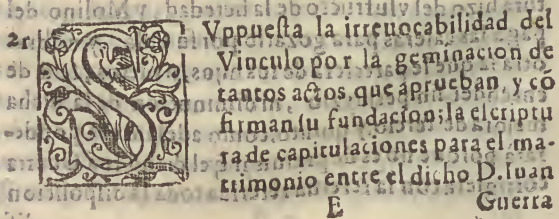 21 SVppuesta la irreuocabilidad del
Vinculo por la geminacion de
tantos actos, que aprueban, y co
firman su fundacion; la escriptu
ra de capitulaciones para el ma-
trimonio entre el dicho D. Iuan
E Guerra